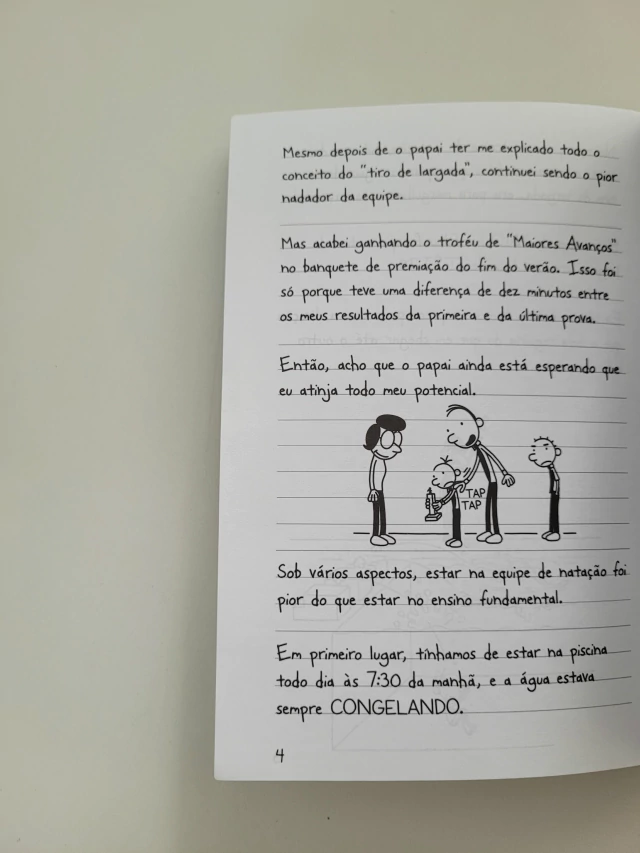 Mesmo depois de o papai ter me explicado todo o
conceito do "tiro de largada", continuei sendo o pior
nadador da equipe.
Mas acabei ganhando o troféu de "Maiores Avanços"
no banquete de premiação do fim do verão. Isso foi
só porque teve uma diferença de dez minutos entre
os meus resultados da primeira e da última prova.
Então, acho que o papai ainda está esperando que
eu atinja todo meu potencial.
TAP
TAP
Sob vários aspectos, estar na equipe de natação foi
pior do que estar no ensino fundamental.
Em primeiro lugar, tínhamos de estar na piscina
todo dia às 7:30 da manhã, e a água estava
sempre CONGELANDO.
4